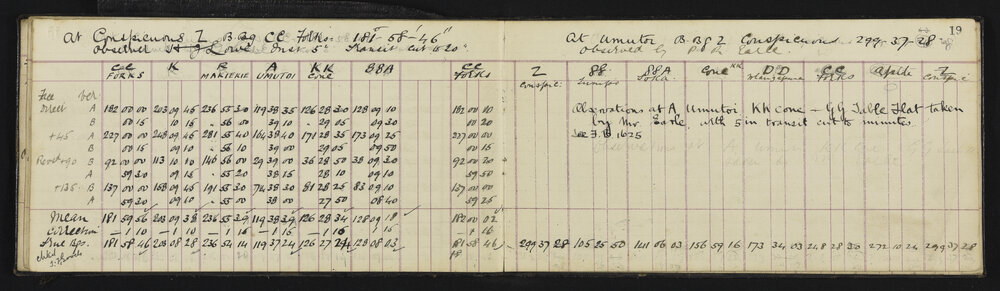 19
At Conspicuous Z B.Bg CC Forks. 181°-58'-46"
Observer H J Lowe Inst 5" Transit cut to 20"
CC FORKS K B MAKIEKIE A UMUTOI KK Cone 88A CC FORKS
Face ver
Direct A 182 00 00 203 09 45 236 55 30 119 38 35 126 28 30 128 09 10 182 00 10
B 00 15 10 15 56 00 39 10 29 05 09 30 00 20
+45 A 227 00 00 248 09 45 281 55 40 164 38 40 171 28 35 173 09 25 227 00 00
B 00 15 09 10 56 10 39 00 29 05 09 50 00 15
B 92 00 00 113 10 10 146 56 00 29 39 00 36 28 50 38 09 30 92 00 20
A 59 30 09 15 55 20 38 15 28 10 09 10 59 50
+135 B 137 00 00 158 09 45 191 55 30 74 38 30 81 28 25 83 09 10 137 00 00
A 59 30 09 10 55 00 38 00 27 50 08 40 59 25
Mean 181 59 56 203 09 38 236 55 39 119 38 39 126 28 34 128 09 18 182 00 02
Correction — 1 10 — 1 10 — 1 15 — 1 15 — 1 15 1 15 — 1 16
True Bgs. 181 58 46 203 08 28 236 54 14 119 37 24 126 27 24 128 08 03 181 58 46
At Umutoi B.BG Z Conspicuous 299 37 28
Observed by P. R. Earle.
Z Conspic: 88 88A Cone KK DD CC Forks Z Conspic:
Observations at A Umutoi KK cone – GG Table Flat taken
by Mr. Earle with 5 in transit cut to minutes.
See F.B 1625
299 37 28 105 25 50 121 06 03 156 59 16 173 34 03 248 28 30 272 10 24 299 37 28